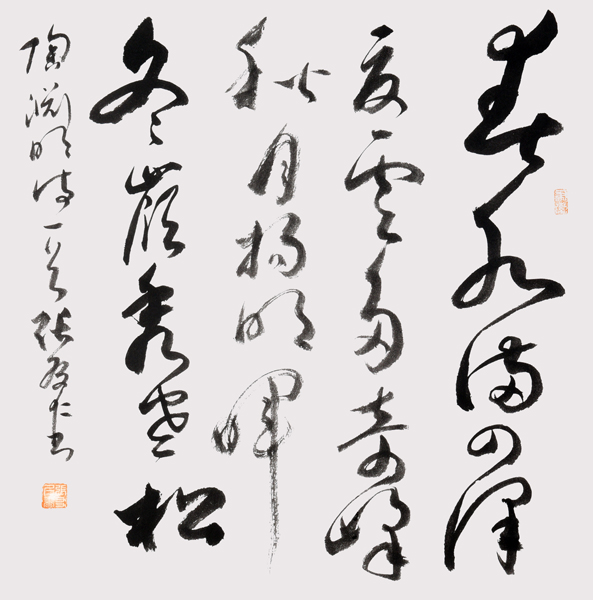 春水滿四澤
夏雲多奇峰
秋月揚明暉
冬嶺秀寒松
陶淵明詩一首 張